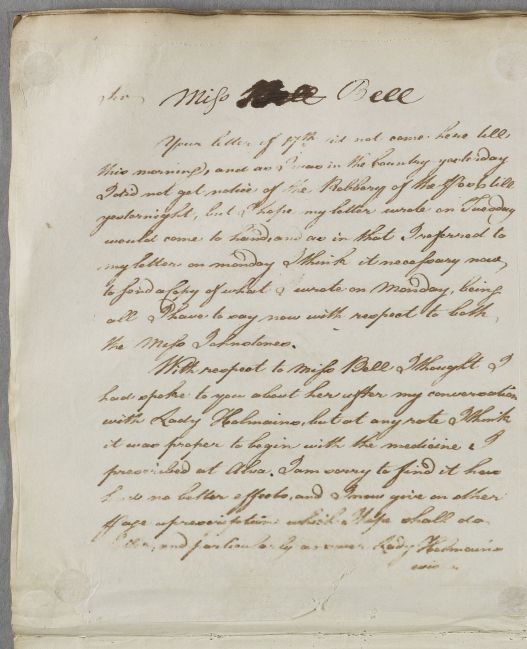 Miss Bell
Your letter of 17th did not come here till
this morning, and as I was in the Country yesterday
I did not get notice of the Robbery of the till
yesternight, but I hope my letter wrote on Tuesday
would come to hand, and as in that I referred to
my letter on monday I think it necessary now
to send a Copy of what I wrote on Monday, being
all I have to say now with respect to both
the Miss Johnstones.
With respect to Miss Bell I thought I
had spoke to you about her after my conversation
with Lady Holmains, but at any rate I think
it was proper to begin with the medicine I
prescribed at Alva. I am sorry to find it has
had no better effects, and I now give on other
page a prescription which I hope shall do
and particularly answer Lady Holmains